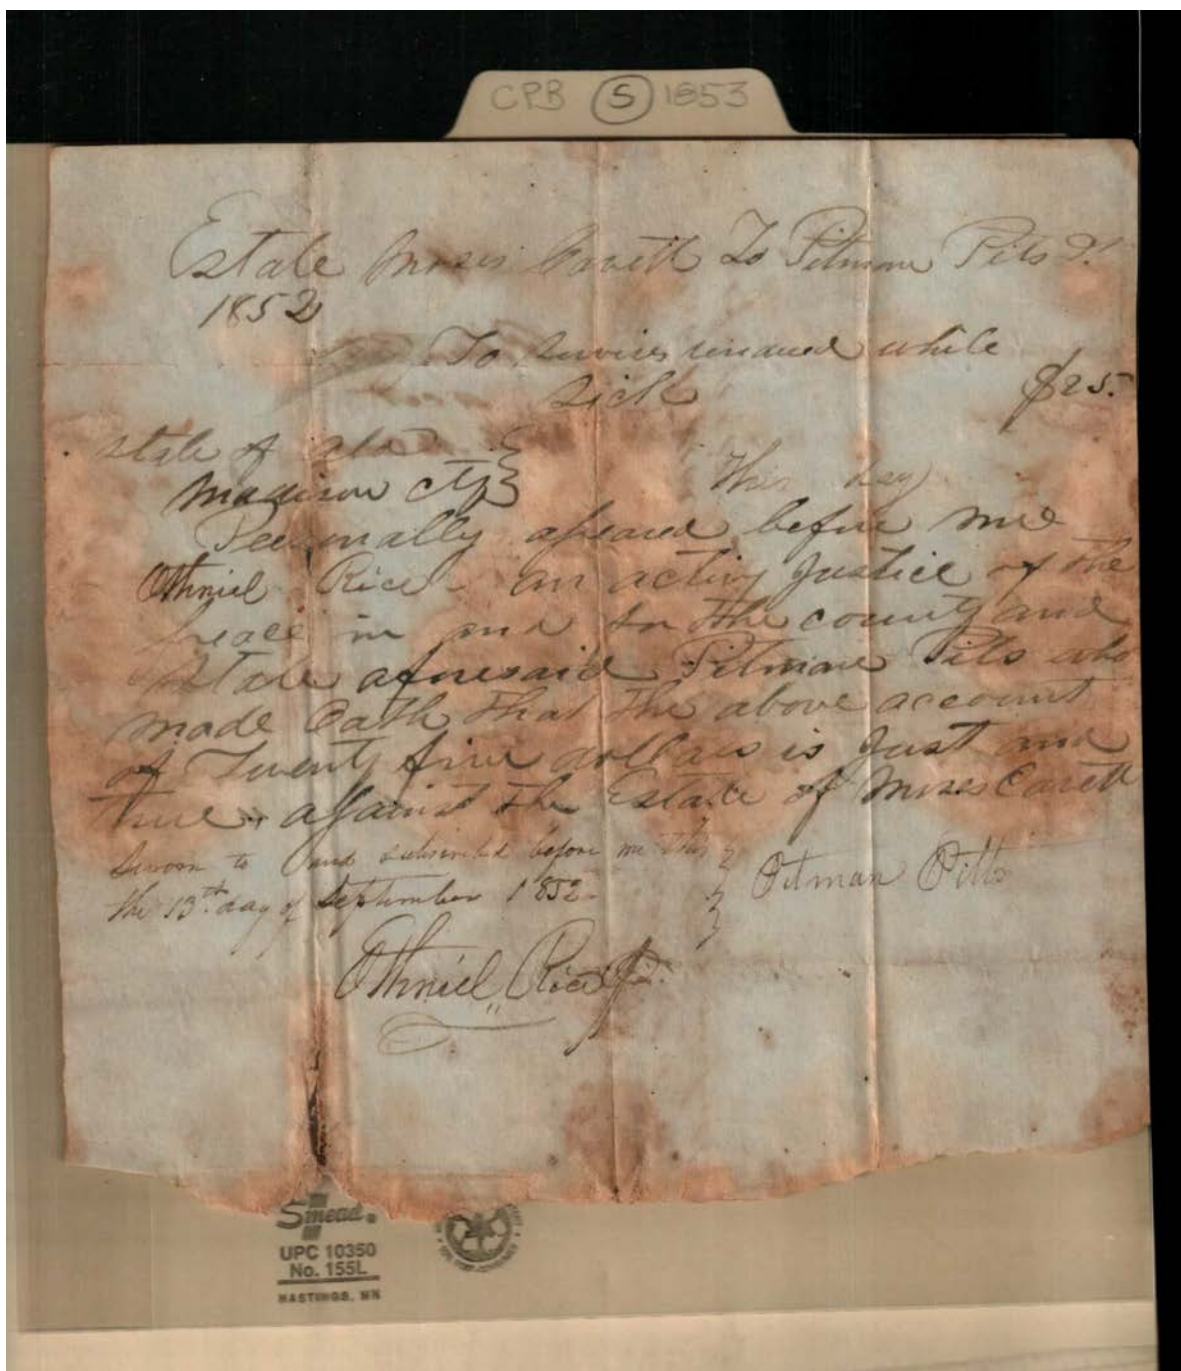 CPB S 1853
Estate Moses Carett To Pitman Pits Dr
1852
To Services rendered while
sick $25.
State of Ala
Madison Cty
This day
Personally apeared before me
Othniel Rice an acting Justice of the
peace in and for the county and
state aforesaid Pitman Pits who
made Oath that the above account
of Twenty five dollars is Just and
true against the Estate of Moses Carett
Sworn to and subscribed before me this
the 13th day of September 1852
Pitman Pitts
Othniel Rice J.P.
Smead
UPC 10350
No. 155L
HASTINGS, MN